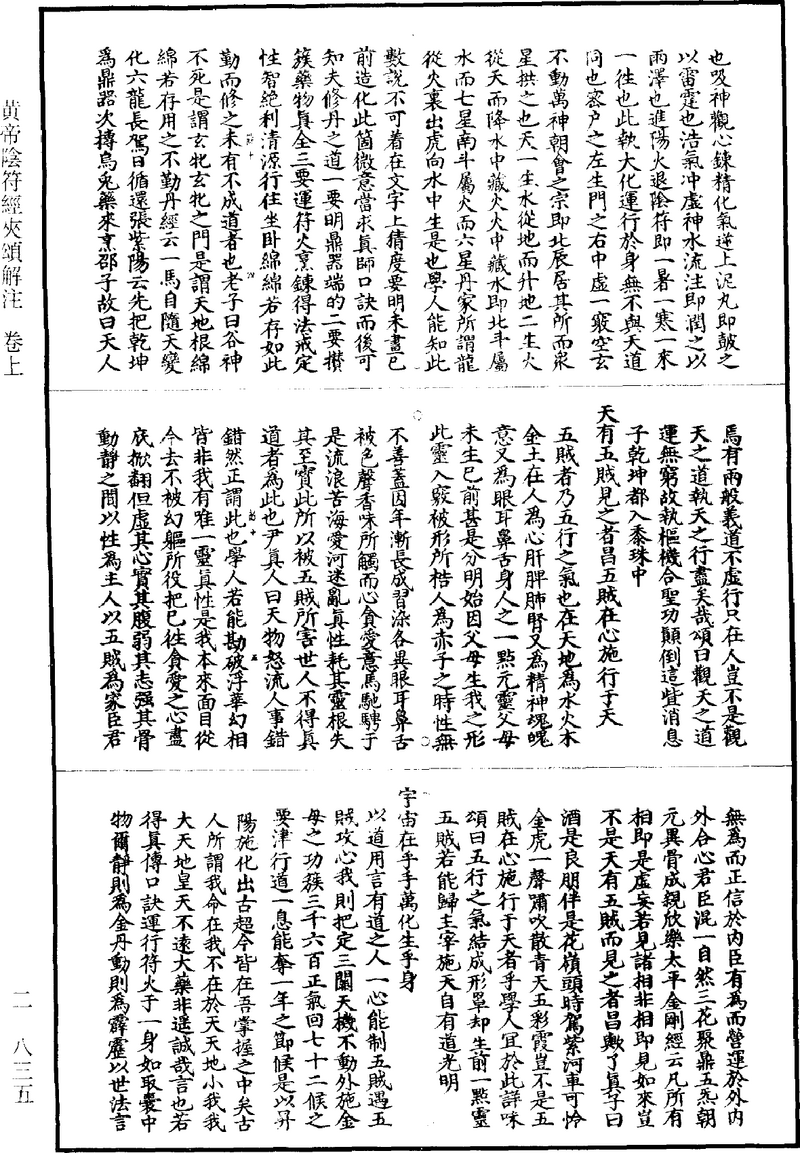 黃帝陰符經夾頌解注　卷上
二　八三五
也吸神觀心鍊精化氣逆上泥丸即皷之
以雷霆也浩氣冲虛神水流注即潤之以
雨澤也進陽火退陰符即一暑一寒一來
一徃也此執大化運行於身無不與天道
同也密户之左生門之右中虛一竅空玄
不動萬神朝會之宗即北辰居其所而衆
星拱之也天一生水從地而升地二生火
從天而降水中藏火火中藏水即北斗屬
水而七星南斗屬火而六星丹家所謂龍
從火裏出虎向水中生是也學人能知此
數說不可着在文字上猜度要明未畫已
前造化此箇微意當求真師口訣而後可
知夫修丹之道一要明鼎器端的二要攅
簇藥物真全三要運符火烹鍊得法戒定
性智絶利清源行住坐卧綿綿若存如此
勤而修之未有不成道者也老子曰谷神
不死是謂玄牝玄牝之門是謂天地根綿
綿若存用之不勤丹經云一馬自隨天變
化六龍長駕日循還張紫陽云先把乾坤
爲鼎器次摶烏兎藥來烹邵子故曰天人
焉有兩般義道不虛行只在人豈不是觀
天之道執天之行盡矣哉頌曰觀天之道
運無窮故執樞機合聖功顛倒這些消息
子乾坤都入黍珠中
天有五賊見之者昌五賊在心施行于天
五賊者乃五行之氣也在天地爲水火木
金土在人爲心肝脾肺腎又爲精神魂魄
意又爲眼耳鼻舌身人之一點元靈父母
未生已前甚是分明始因父母生我之形
此靈入竅被形所梏人爲赤子之時性無
不善蓋因年漸長成習染各異眼耳鼻舌
被色聲香味所觸而心貪愛意馬馳騁于
是流浪苦海愛河迷亂真性耗其靈根失
其至寳此所以被五賊所害世人不得真
道者爲此也尹真人曰天物怒流人事錯
錯然正謂此也學人若能勘破浮華幻相
皆非我有唯一靈真性是我本來面目從
今去不被幻軀所役把已徃貪愛之心盡
底掀翻但虛其心實其腹弱其志强其骨
動靜之間以性爲主人以五賊爲家臣君
無爲而正信於内臣有爲而營運於外内
外合心君臣混一自然三花聚鼎五炁朝
元異骨成親欣樂太平金剛經云凡所有
相即是虛妄若見諸相非相即見如來豈
不是天有五賊而見之者昌歟了真子曰
酒是良朋伴是花嶺頭時駕紫河車可怜
金虎一聲嘯吹散青天五彩霞豈不是五
賊在心施行于天者乎學人宜於此詳味
頌曰五行之氣結成形單却生前一點靈
五賊若能歸主宰施天自有道光明
宇宙在乎手萬化生乎身
以道用言有道之人一心能制五賊遇五
賊攻心我則把定三關天機不動外施金
母之功簇三千六百正氣回七十二候之
要津行道一息能奪一年之節候是以昇
陽施化出古超今皆在吾掌握之中矣古
人所謂我命在我不在於天天地小我我
大天地皇天不遠大藥非遥誠哉言也若
得真傳口訣運行符火于一身如取囊中
物爾靜則爲金丹動則爲霹靂以世法言